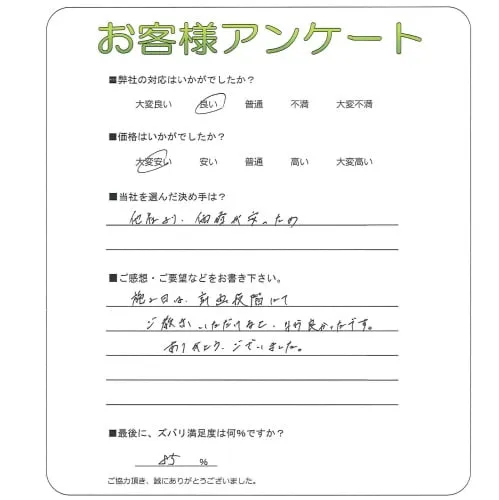 お客様アンケート
■弊社の対応はいかがでしたか？
大変良い 良い 普通 不満 大変不満
■価格はいかがでしたか？
大変安い 安い 普通 高い 大変高い
■当社を選んだ決め手は？
他社より、価格が安いため
■ご感想・ご要望などをお書き下さい。
施工日は、計画段階にて
ご教示いただけると、
良かったです。
ありがとうございました。
■最後に、ズバリ満足度は何％ですか？
85 ％
ご協力頂き、誠にありがとうございました。